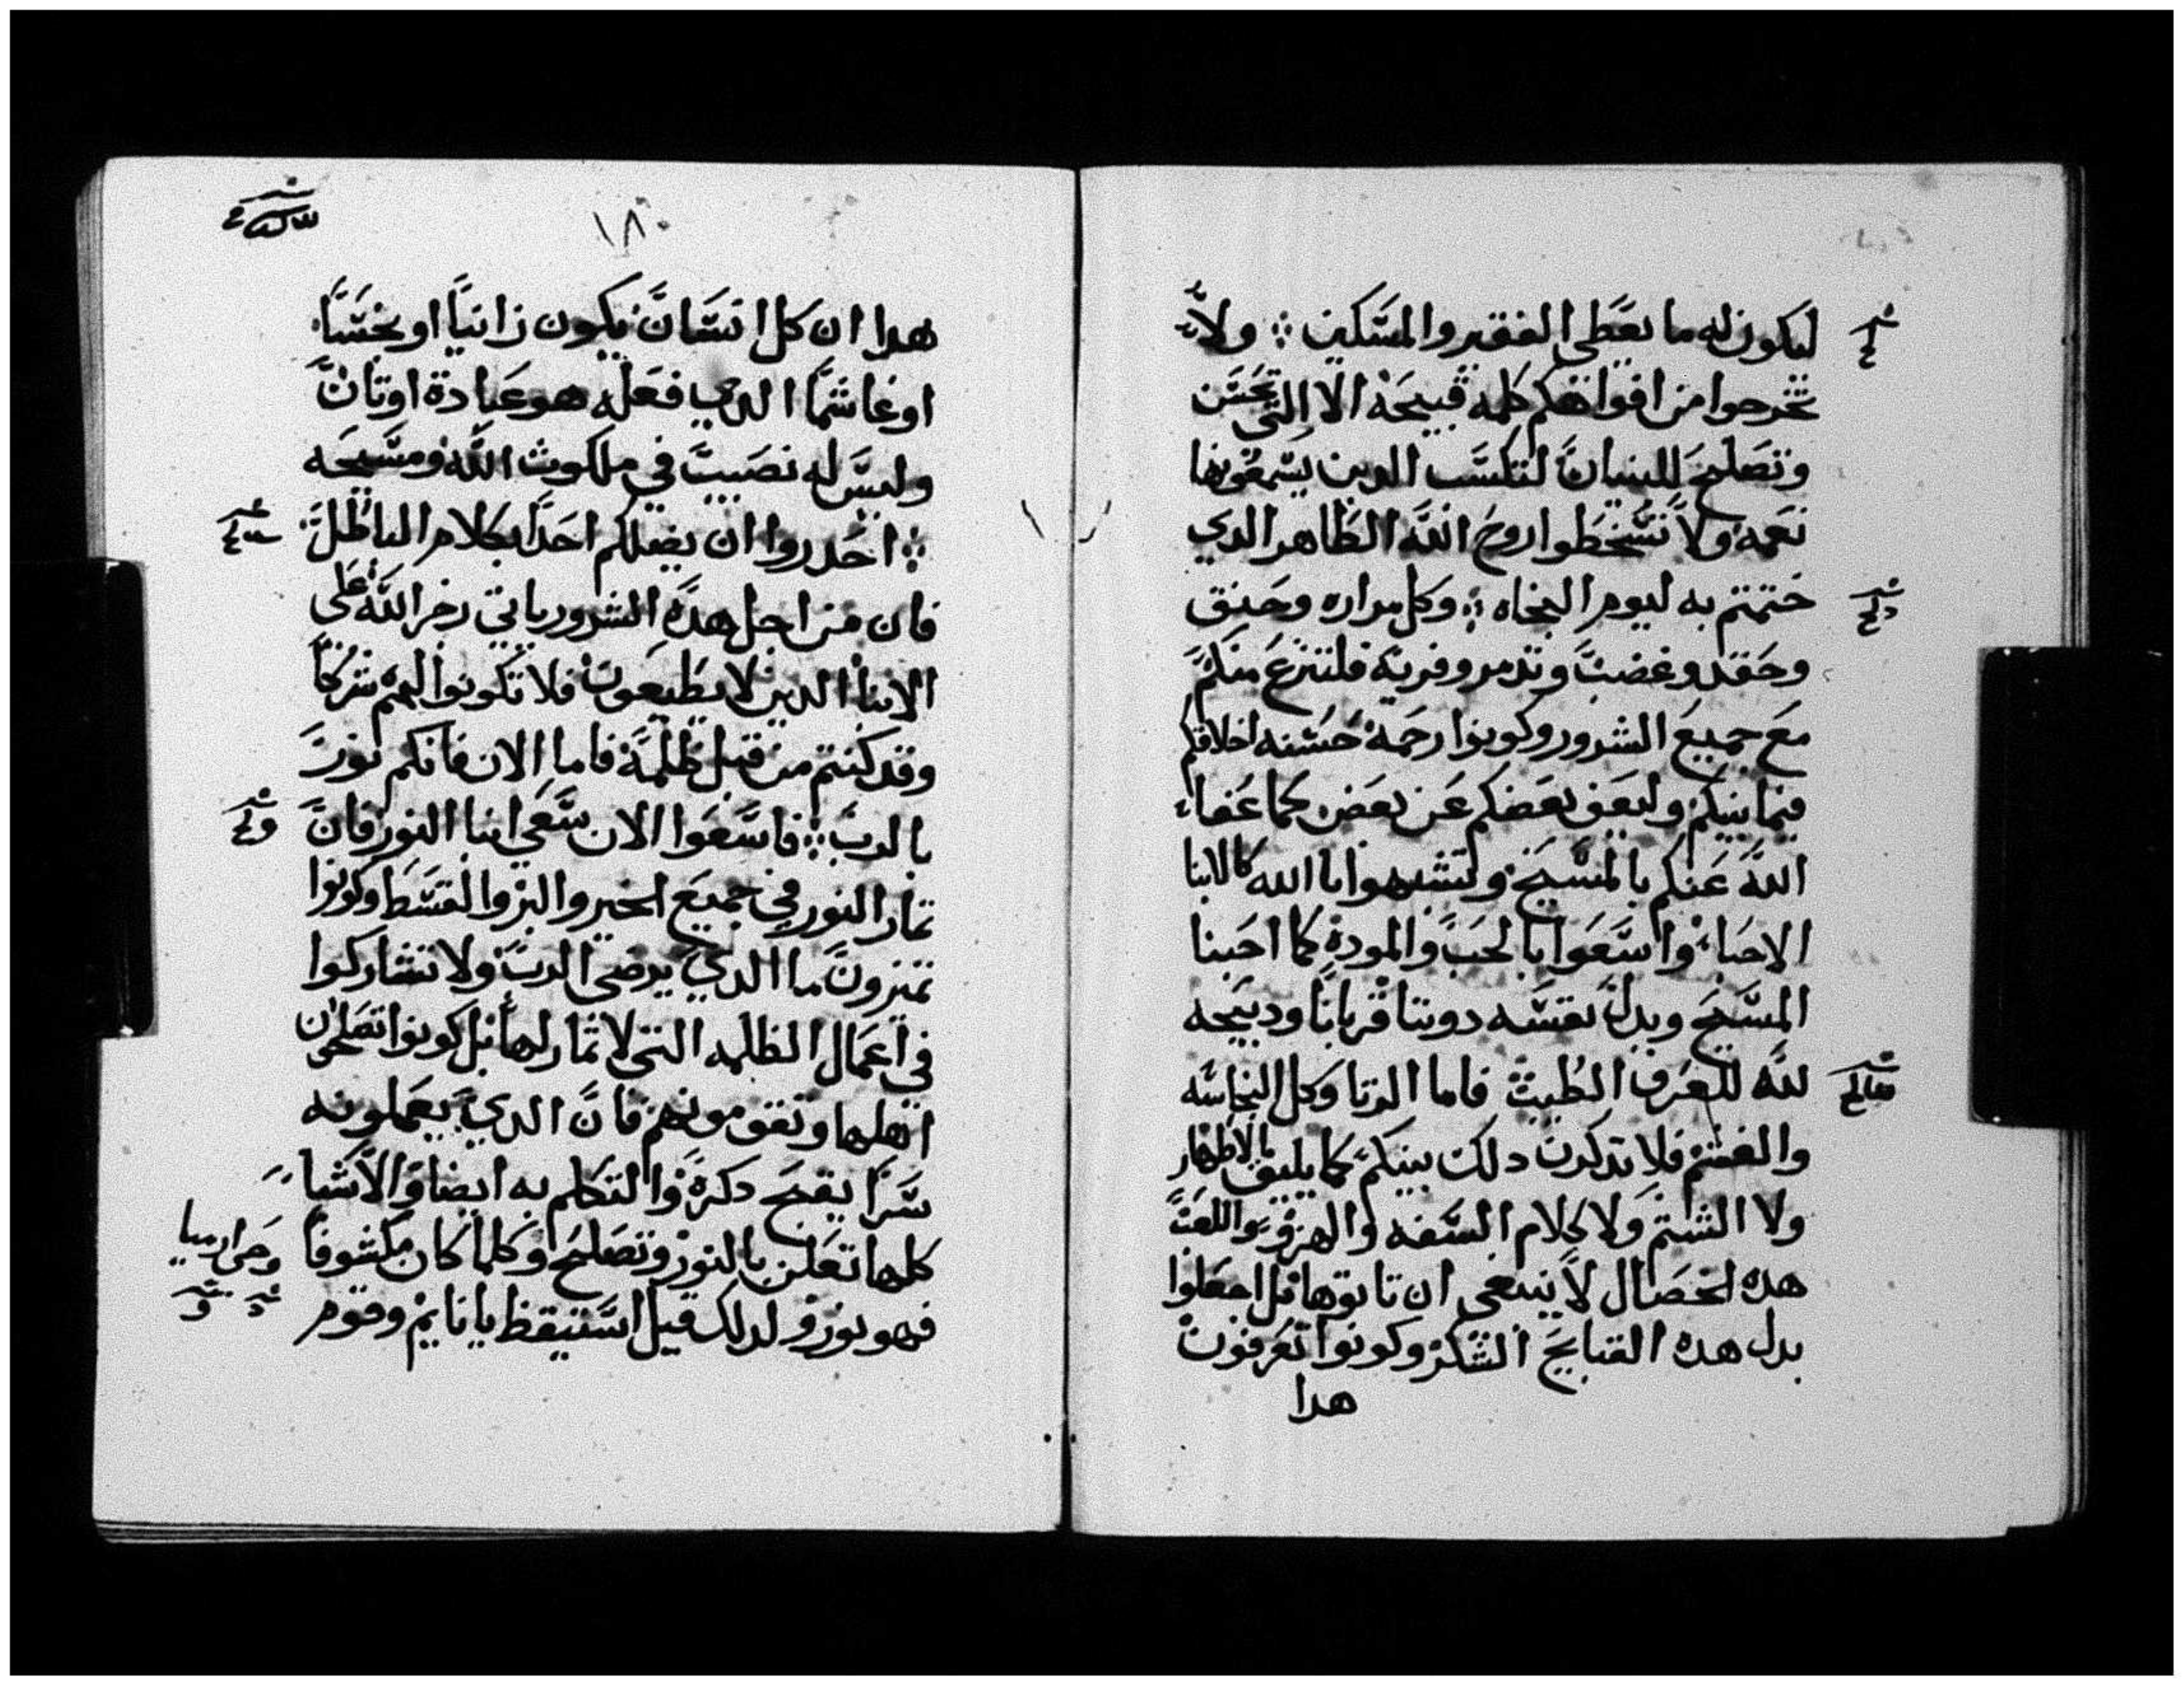 ليكون له ما يعطي الفقير والمسكين ؞ ولا
تخرجوا من افواهكم كلمه قبيحه الا التي تحسن
وتصلح للبنيان لتكسب الدين يسمعونها
نعمه ولا تسخطوا روح الله الطاهر الدي
ختمتم به ليوم النجاه ؞ وكل مراره وحنق
وحقد وغضب وتدمر وفريه فلتنزع منكم
مع جميع الشرور وكونوا رحمة حسنه اخلاقكم
فيما بينكم وليعف بعضكم عن بعض كما عفا
الله عنكم بالمسيح وتشبهوا بالله كالابنا
الاحبا واسعوا بالحب والمودة كما احبنا
المسيح وبدل نفسه دوننا قربانا ودبيحه
لله للعرف الطيب فاما الزنا وكل النجاسه
والغشم فلا تدكرن دلك بينكم كما يليق بالاطهار
ولا الشتم ولا كلام السفه والهزو واللعب
هده الخصال لا ينبغي ان تاتوها بل اجعلوا
بدل هده القبايح الشكر وكونوا تعرفون
هدا
١٨٠
هدا ان كل انسان يكون زانيا او نجسا
او غاشما الدي فعله هو عبادة اوتان
وليس له نصيب في ملكوت الله ومسيحه
؞ احدروا ان يضلكم احدا بكلام الباطل
فان من اجل هده الشرور ياتي رجز الله على
الابنا الدين لا يطيعون فلا تكونوا لهم شركا
وقد كنتم من قبل ظلمة فاما الان فانكم نور
بالرب ؞ فاسعوا الان سعي ابنا النور فان
تمار النور في جميع الخير والبر والقسط وكونوا
تميزون ما الدي يرضي الرب ولا تشاركوا
في اعمال الظلمه التي لا تمار لها بل كونوا تفضحون
اهلها وتقومونهم فان الدي يعملونه
سرا يقبح دكرة والتكلم به ايضا والاشيا
كلها تعلن بالنور وتصلح وكلما كان مكشوفا
فهو نور ولدلك قيل استيقظ يا نايم وقوم